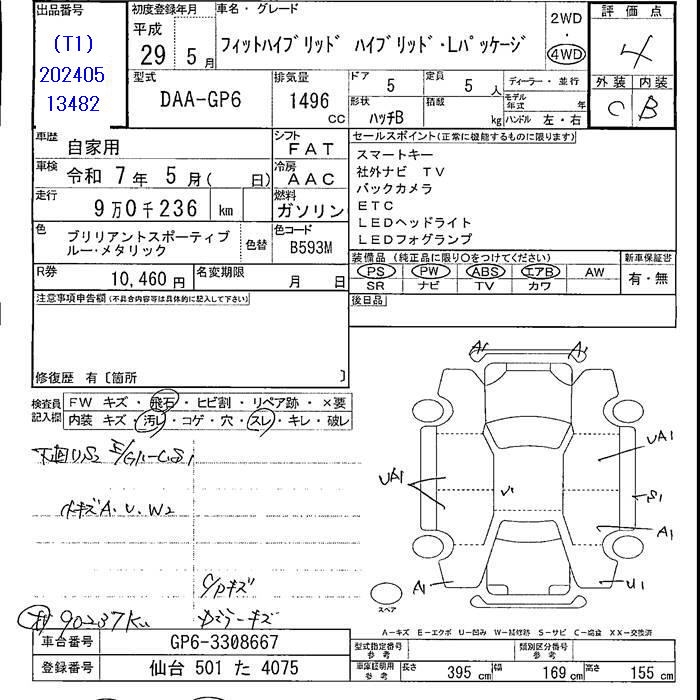 出品番号
(T1)
202405
13482
初度登録年月
平成
29 5 月
車名・グレード
フィットハイブリッド ハイブリッド・Lパッケージ
2WD
・
4WD
評価点
4
外装 内装
C B
型式
DAA-GP6
排気量
1496
CC
ドア
5
定員
5 人
形状
ハッチB
積載
kg
ディーラー・並行
モデル年式 年
ハンドル 左・右
車歴
自家用
シフト
FAT
車検
令和 7 年 5 月( 日)
冷房
AAC
走行
9万0千236 km
燃料
ガソリン
色
ブリリアントスポーティブ
ルー・メタリック
色替
色コード
B593M
R券
10,460 円
名変期限
月 日
セールスポイント(正常に機能するものに限ります)
スマートキー
社外ナビ TV
バックカメラ
ETC
LEDヘッドライト
LEDフォグランプ
装備品 (純正品に限り○をつけてください)
PS PW ABS エアB AW
SR ナビ TV カワ
新車保証書
有・無
後日品
注意事項申告欄(不具合内容等は具体的に記入して下さい)
修復歴 有〔箇所 〕
検査員
記入欄
FW キズ・飛石・ヒビ割・リペア跡・×要
内装 キズ・汚レ・コゲ・穴・スレ・キレ・破レ
下廻りS2
小キズA、U、W2
C/Pキズ
90237Km
ドアミラーキズ
A1 A1
UA1
UA1
S1
A1
A1
U1
スペア
A-キズ E-エクボ U-凹み W-補修跡 S-サビ C-腐食 XX-交換済
車台番号
GP6-3308667
登録番号
仙台 501 た 4075
型式指定番号
参考
類別区分番号
参考
車庫証明用
参考
長さ 395 cm
幅 169 cm
高さ 155 cm